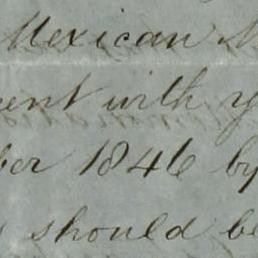 Mexican
ent with y
ber 1846 by
should be